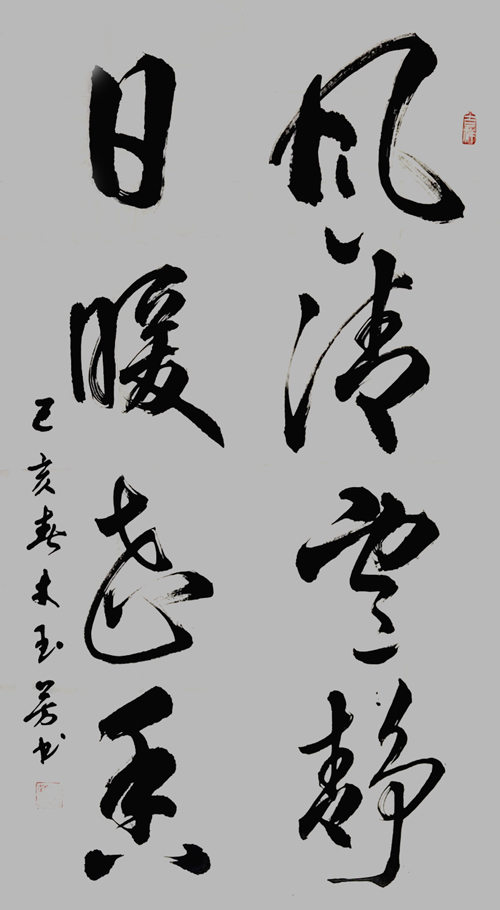 風清雲静
日暖花香
己亥春木玉芳书